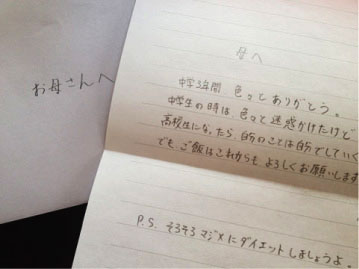 お母さんへ
母へ
中学3年間、色々とありがとう。
中学生の時は、色々と迷惑かけたけど
高校生になったら自分のことは自分でしてい
でも、ご飯はこれからもよろしくお願いします
P.S. そろそろマジメにダイエットしましょうよ。